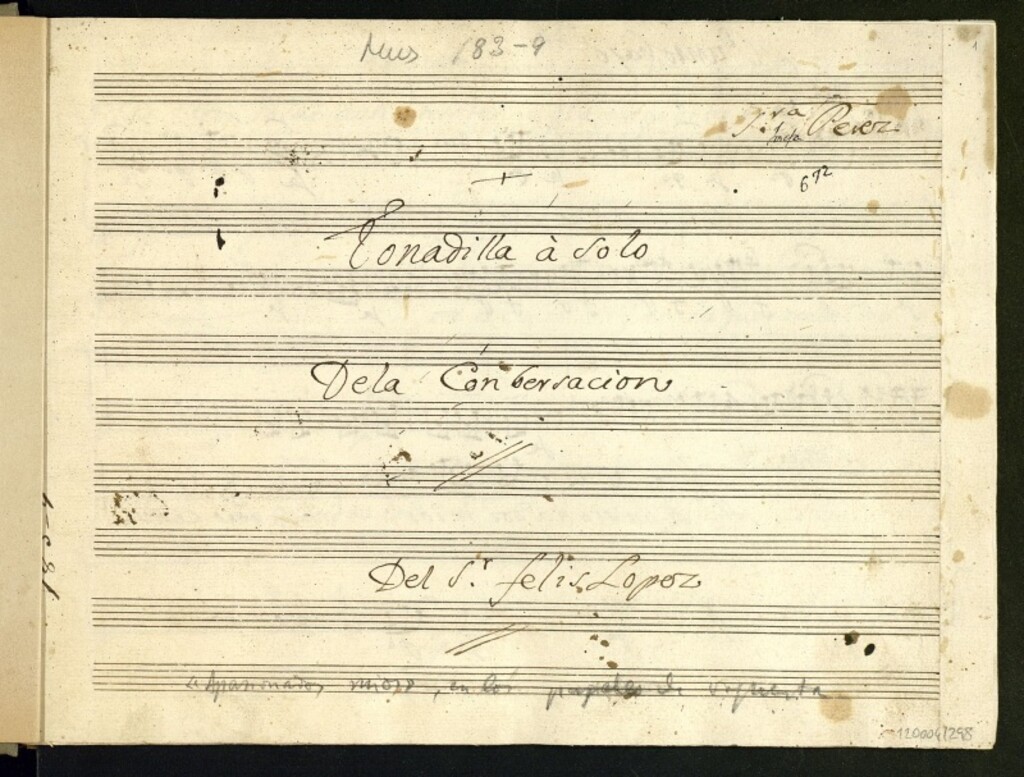 Mus 183-9
S.ra Perez
672
Tonadilla à Solo
Dela Conbersacion
Del S.r felis Lopez
en los papeles de orquesta
1200041298
183-9
1